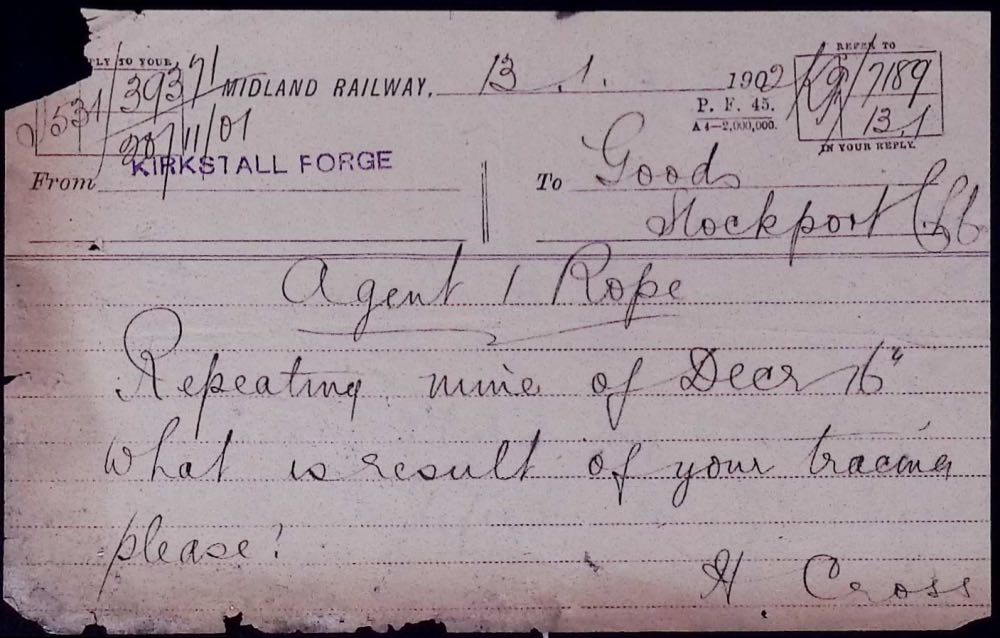 PLY TO YOUR
REFER TO
39371
MIDLAND RAILWAY, 13 . 1. 1902
7189
1531
P. F. 45.
13.1
A 4—2,000,000.
28/11/01
IN YOUR REPLY.
From KIRKSTALL FORGE
To Goods
Stockport
Agent 1 Rope
Repeating mine of Decr 16"
what is result of your tracing
please?
H Cross